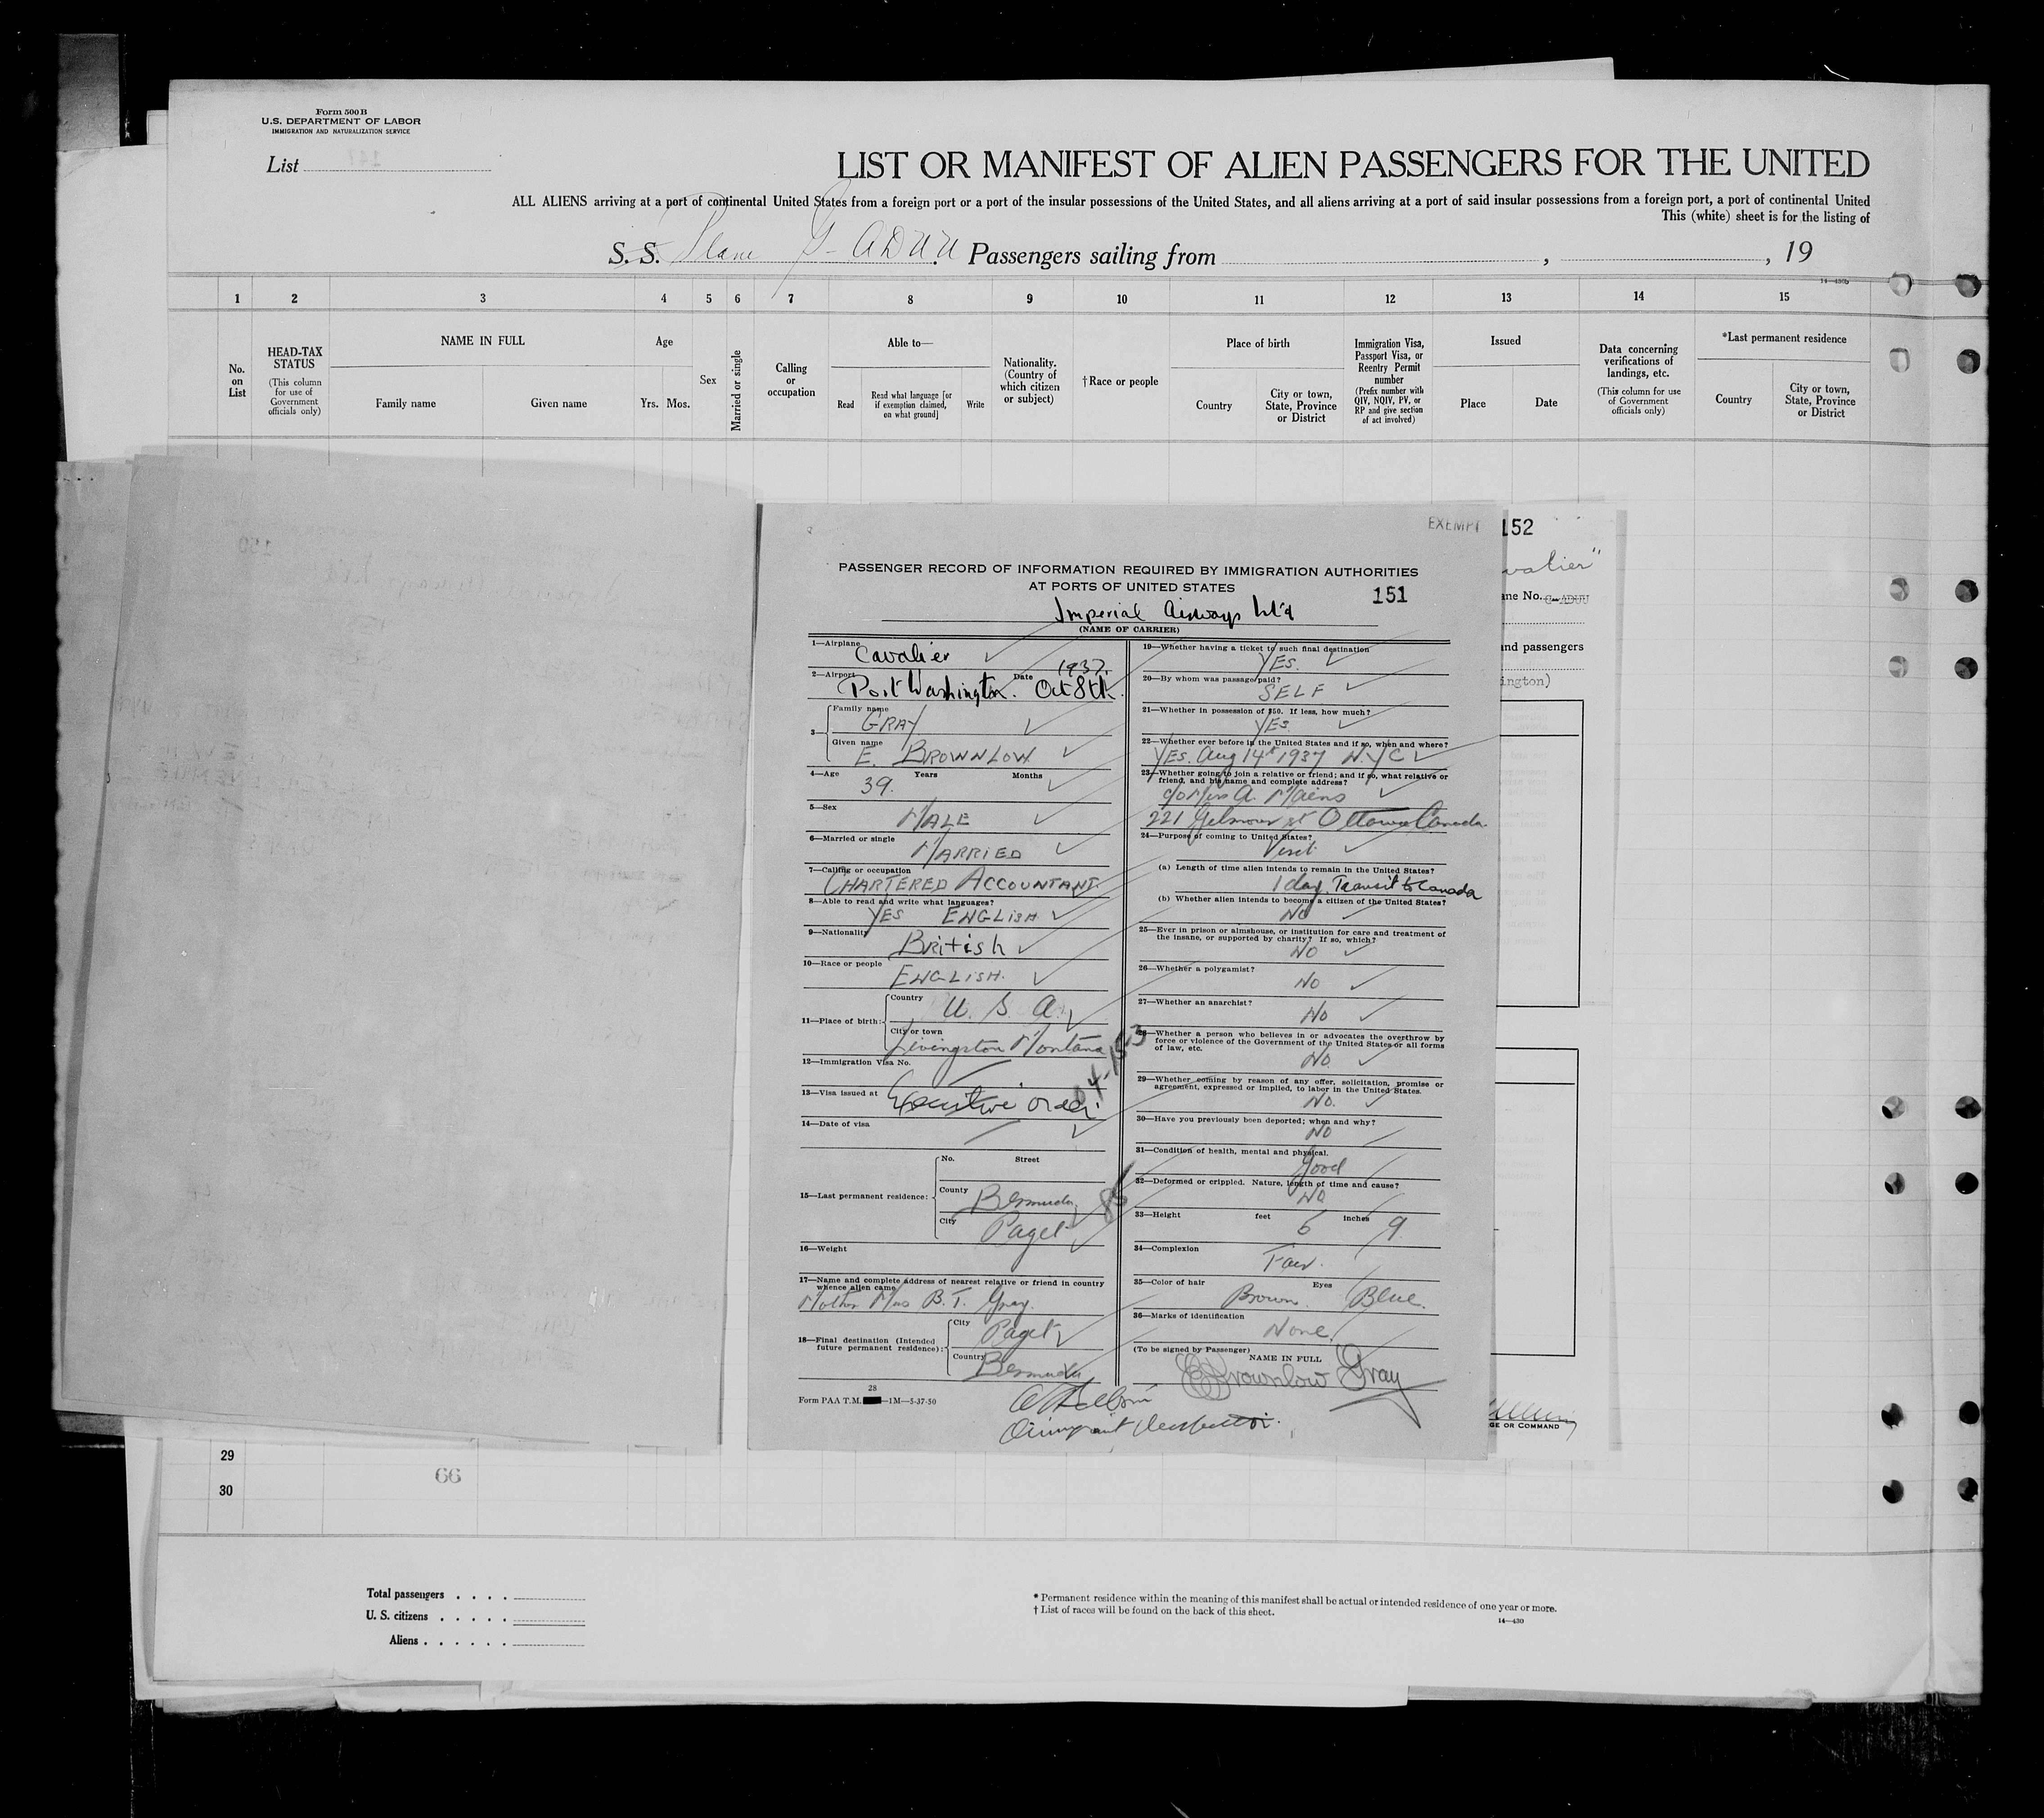 Form 500 B
U.S. DEPARTMENT OF LABOR
IMMIGRATION AND NATURALIZATION SERVICE
List
LIST OR MANIFEST OF ALIEN PASSENGERS FOR THE UNITED
ALL ALIENS arriving at a port of continental United States from a foreign port or a port of the insular possessions of the United States, and all aliens arriving at a port of said insular possessions from a foreign port, a port of continental United
This (white) sheet is for the listing of
S. S. Plane G-ADUU Passengers sailing from , , 19
14—430b
1 2 3 4 5 6 7 8 9 10 11 12 13 14 15
No. on List
HEAD-TAX STATUS
(This column for use of Government officials only)
NAME IN FULL
Family name
Given name
Age
Yrs. Mos.
Sex
Married or single
Calling or occupation
Able to—
Read
Read what language [or if exemption claimed, on what ground]
Write
Nationality. (Country of which citizen or subject)
†Race or people
Place of birth
Country
City or town, State, Province or District
Immigration Visa, Passport Visa, or Reentry Permit number
(Prefix number with QIV, NQIV, PV, or RP and give section of act involved)
Issued
Place
Date
Data concerning verifications of landings, etc.
(This column for use of Government officials only)
*Last permanent residence
Country
City or town, State, Province or District
EXEMPT
PASSENGER RECORD OF INFORMATION REQUIRED BY IMMIGRATION AUTHORITIES
AT PORTS OF UNITED STATES
151
Imperial Airways Lt'd
(NAME OF CARRIER)
1—Airplane Cavalier
2—Airport Port Washington. Date Oct 8th 1937.
3— Family name GRAY
Given name E. BROWNLOW
4—Age Years Months
39.
5—Sex MALE
6—Married or single MARRIED
7—Calling or occupation
CHARTERED ACCOUNTANT.
8—Able to read and write what languages?
YES ENGLISH
9—Nationality British
10—Race or people ENGLISH.
11—Place of birth: Country U. S. A.
City or town Livingston Montana
12—Immigration Visa No.
13—Visa issued at Executive order
14—Date of visa
15—Last permanent residence: No. Street
County Bermuda
City Paget
16—Weight
17—Name and complete address of nearest relative or friend in country whence alien came
Mother Mrs B. T. Gray.
18—Final destination (Intended future permanent residence): City Paget
Country Bermuda
28
Form PAA T.M. —1M—5-37-50
19—Whether having a ticket to such final destination
YES.
20—By whom was passage paid?
SELF
21—Whether in possession of $50. If less, how much?
YES.
22—Whether ever before in the United States and if so, when and where?
YES. Aug 14th 1937 N.Y.C
23—Whether going to join a relative or friend; and if so, what relative or friend, and his name and complete address?
c/o Miss A. Mains
221 Gilmour st Ottawa Canada.
24—Purpose of coming to United States?
Visit
(a) Length of time alien intends to remain in the United States?
1 day. Transit to Canada
(b) Whether alien intends to become a citizen of the United States?
NO
25—Ever in prison or almshouse, or institution for care and treatment of the insane, or supported by charity? If so, which?
NO
26—Whether a polygamist?
NO
27—Whether an anarchist?
NO
28—Whether a person who believes in or advocates the overthrow by force or violence of the Government of the United States or all forms of law, etc.
NO.
29—Whether coming by reason of any offer, solicitation, promise or agreement, expressed or implied, to labor in the United States.
NO.
30—Have you previously been deported; when and why?
NO
31—Condition of health, mental and physical.
Good
32—Deformed or crippled. Nature, length of time and cause?
NO
33—Height feet 5 inches 9
34—Complexion
Fair.
35—Color of hair Brown. Eyes Blue.
36—Marks of identification
None.
(To be signed by Passenger)
NAME IN FULL
E Brownlow Gray
152
valier"
ane No. G-ADUU
nd passengers
ington)
GE OR COMMAND
29
30
66
Total passengers . . . .
U. S. citizens . . . . .
Aliens . . . . . .
* Permanent residence within the meaning of this manifest shall be actual or intended residence of one year or more.
† List of races will be found on the back of this sheet.
14—430